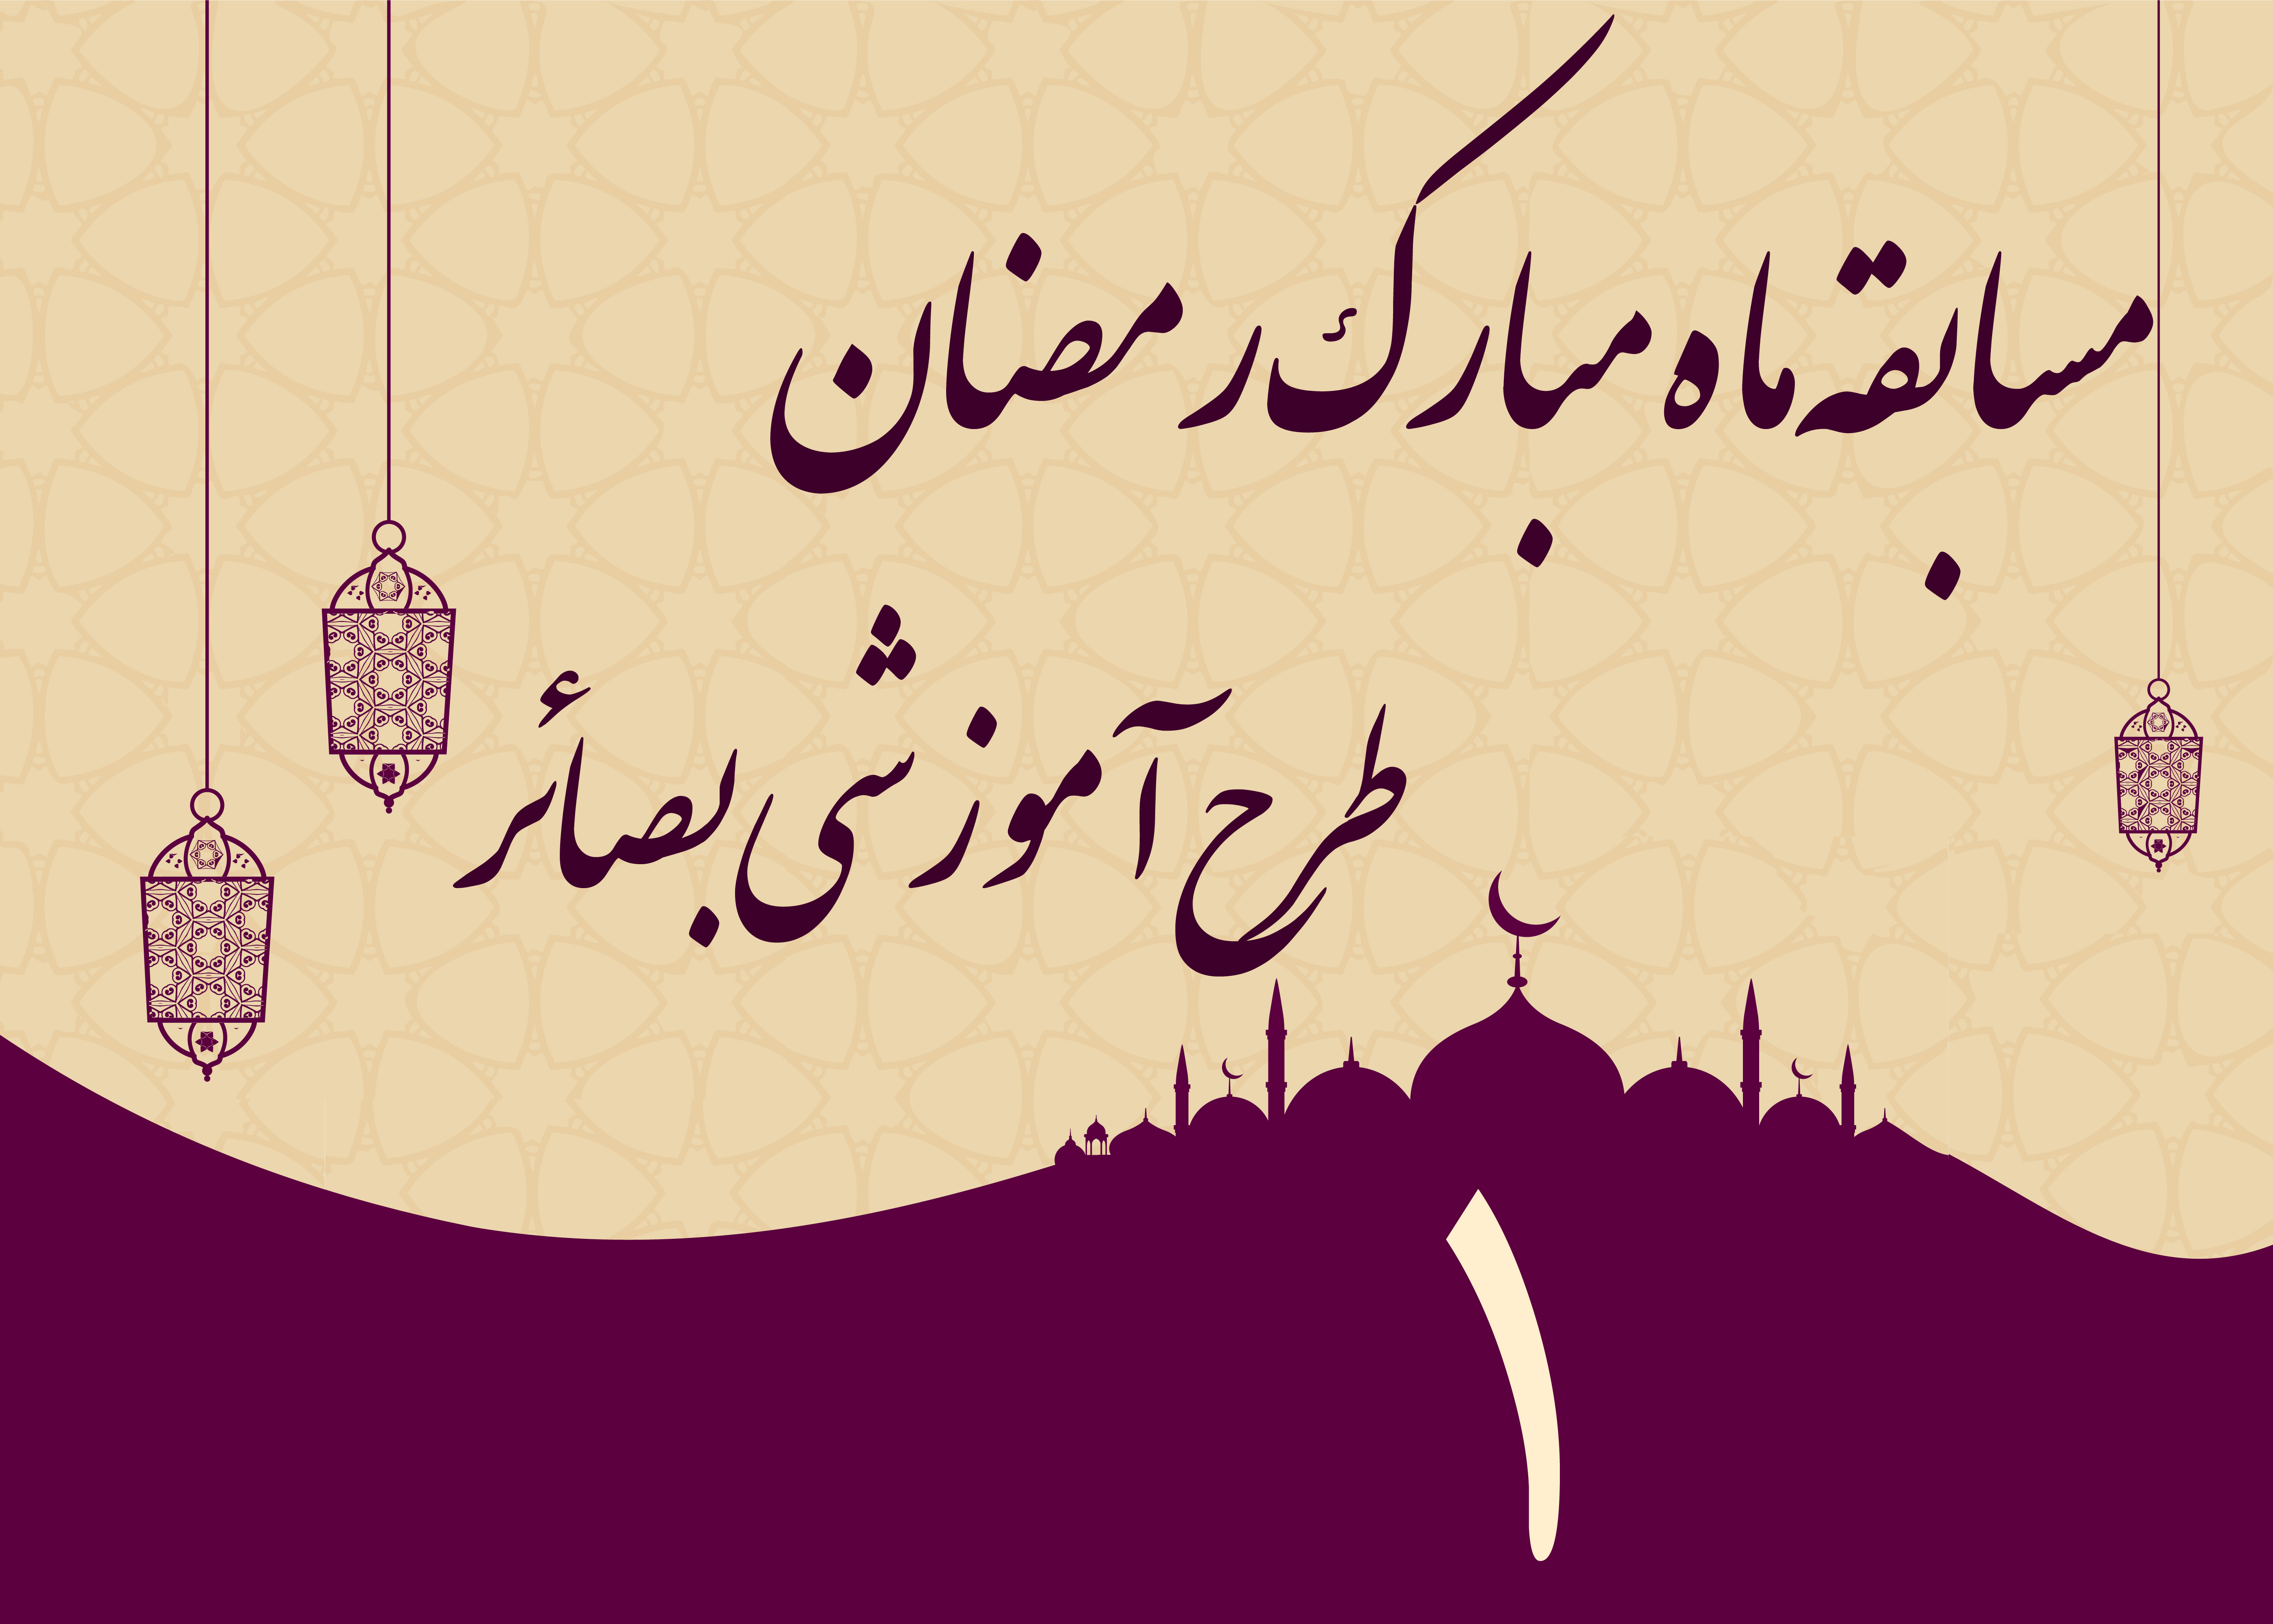 مسابقه ماه مبارک رمضان
طرح آموزشی بصائر
۱